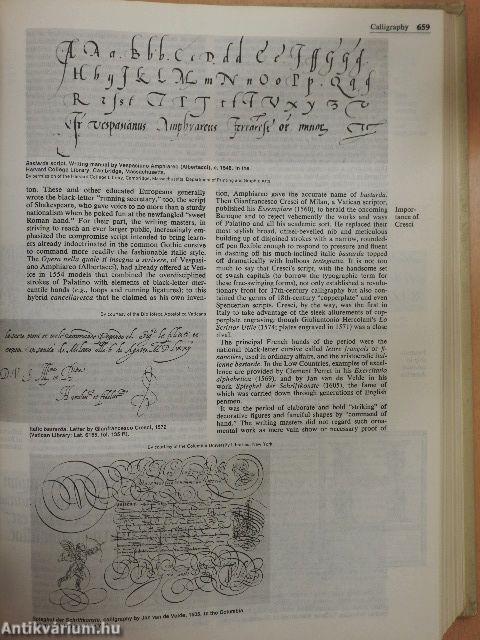 Calligraphy 659
Bastarda script. Writing manual by Vespasiano Amphiareo (Albertacci), c. 1548. In the
Harvard College Library, Cambridge, Massachusetts.
By permission of the Harvard College Library, Cambridge, Massachusetts, Department of Printing and Graphic Arts
ton. These and other educated Europeans generally
wrote the black-letter "running secretary," too, the script
of Shakespeare, who gave voice to no more than a sturdy
nationalism when he poked fun at the newfangled "sweet
Roman hand." For their part, the writing masters, in
striving to reach an ever larger public, increasingly em-
phasized the compromise script intended to bring learn-
ers already indoctrinated in the common Gothic cursive
to command more readily the fashionable italic style.
The Opera nella quale si insegna a scrivere, of Vespasi-
ano Amphiareo (Albertacci), had already offered at Ven-
ice in 1554 models that combined the overdisciplined
strokes of Palatino with elements of black-letter mer-
cantile hands (e.g., loops and running ligatures); to this
hybrid cancellaresca that he claimed as his own inven-
By courtesy of the Biblioteca Apostolica Vaticana
Italic bastarda. Letter by Gianfrancesco Cresci, 1572
(Vatican Library; Lat. 6185, fol. 135 R).
tion, Amphiareo gave the accurate name of bastarda.
Then Gianfrancesco Cresci of Milan, a Vatican scriptor,
published his Essemplare (1560), to herald the oncoming
Baroque and to reject vehemently the works and ways
of Palatino and all his academic sort. He replaced their
most stylish broad, chisel-bevelled nib and meticulous
building up of disjoined strokes with a narrow, rounded-
off pen flexible enough to respond to pressure and fluent
in dashing off his much-inclined italic bastarda topped
off dramatically with bulbous testeggiata. It is not too
much to say that Cresci's script, with the handsome set
of swash capitals (to borrow the typographic term for
these free-swinging forms), not only established a revolu-
tionary front for 17th-century calligraphy but also con-
tained the germs of 18th-century "copperplate" and even
Spencerian scripts. Cresci, by the way, was the first in
Italy to take advantage of the sleek allurements of cop-
perplate engraving, though Giuliantonio Hercolani's Lo
Scrittor Utile (1574; plates engraved in 1571) was a close
rival.
The principal French hands of the period were the
national black-letter cursive called lettre françois or fi-
nancière, used in ordinary affairs, and the aristocratic ital-
ienne bastarde. In the Low Countries, examples of excel-
lence are provided by Clement Perret in his Exercitatio
alphabetica (1569), and by Jan van de Velde in his
work Spieghel der Schrijfkonste (1605), the fame of
which was carried down through generations of English
penmen.
It was the period of elaborate and bold "striking" of
decorative figures and fanciful shapes by "command of
hand." The writing masters did not regard such orna-
mental work as mere vain show or necessary proof of
Impor-
tance of
Cresci
By courtesy of the Columbia University Libraries, New York
Spieghel der Schrijfkonste, calligraphy by Jan van de Velde, 1605. In the Columbia
Antikvarium.hu